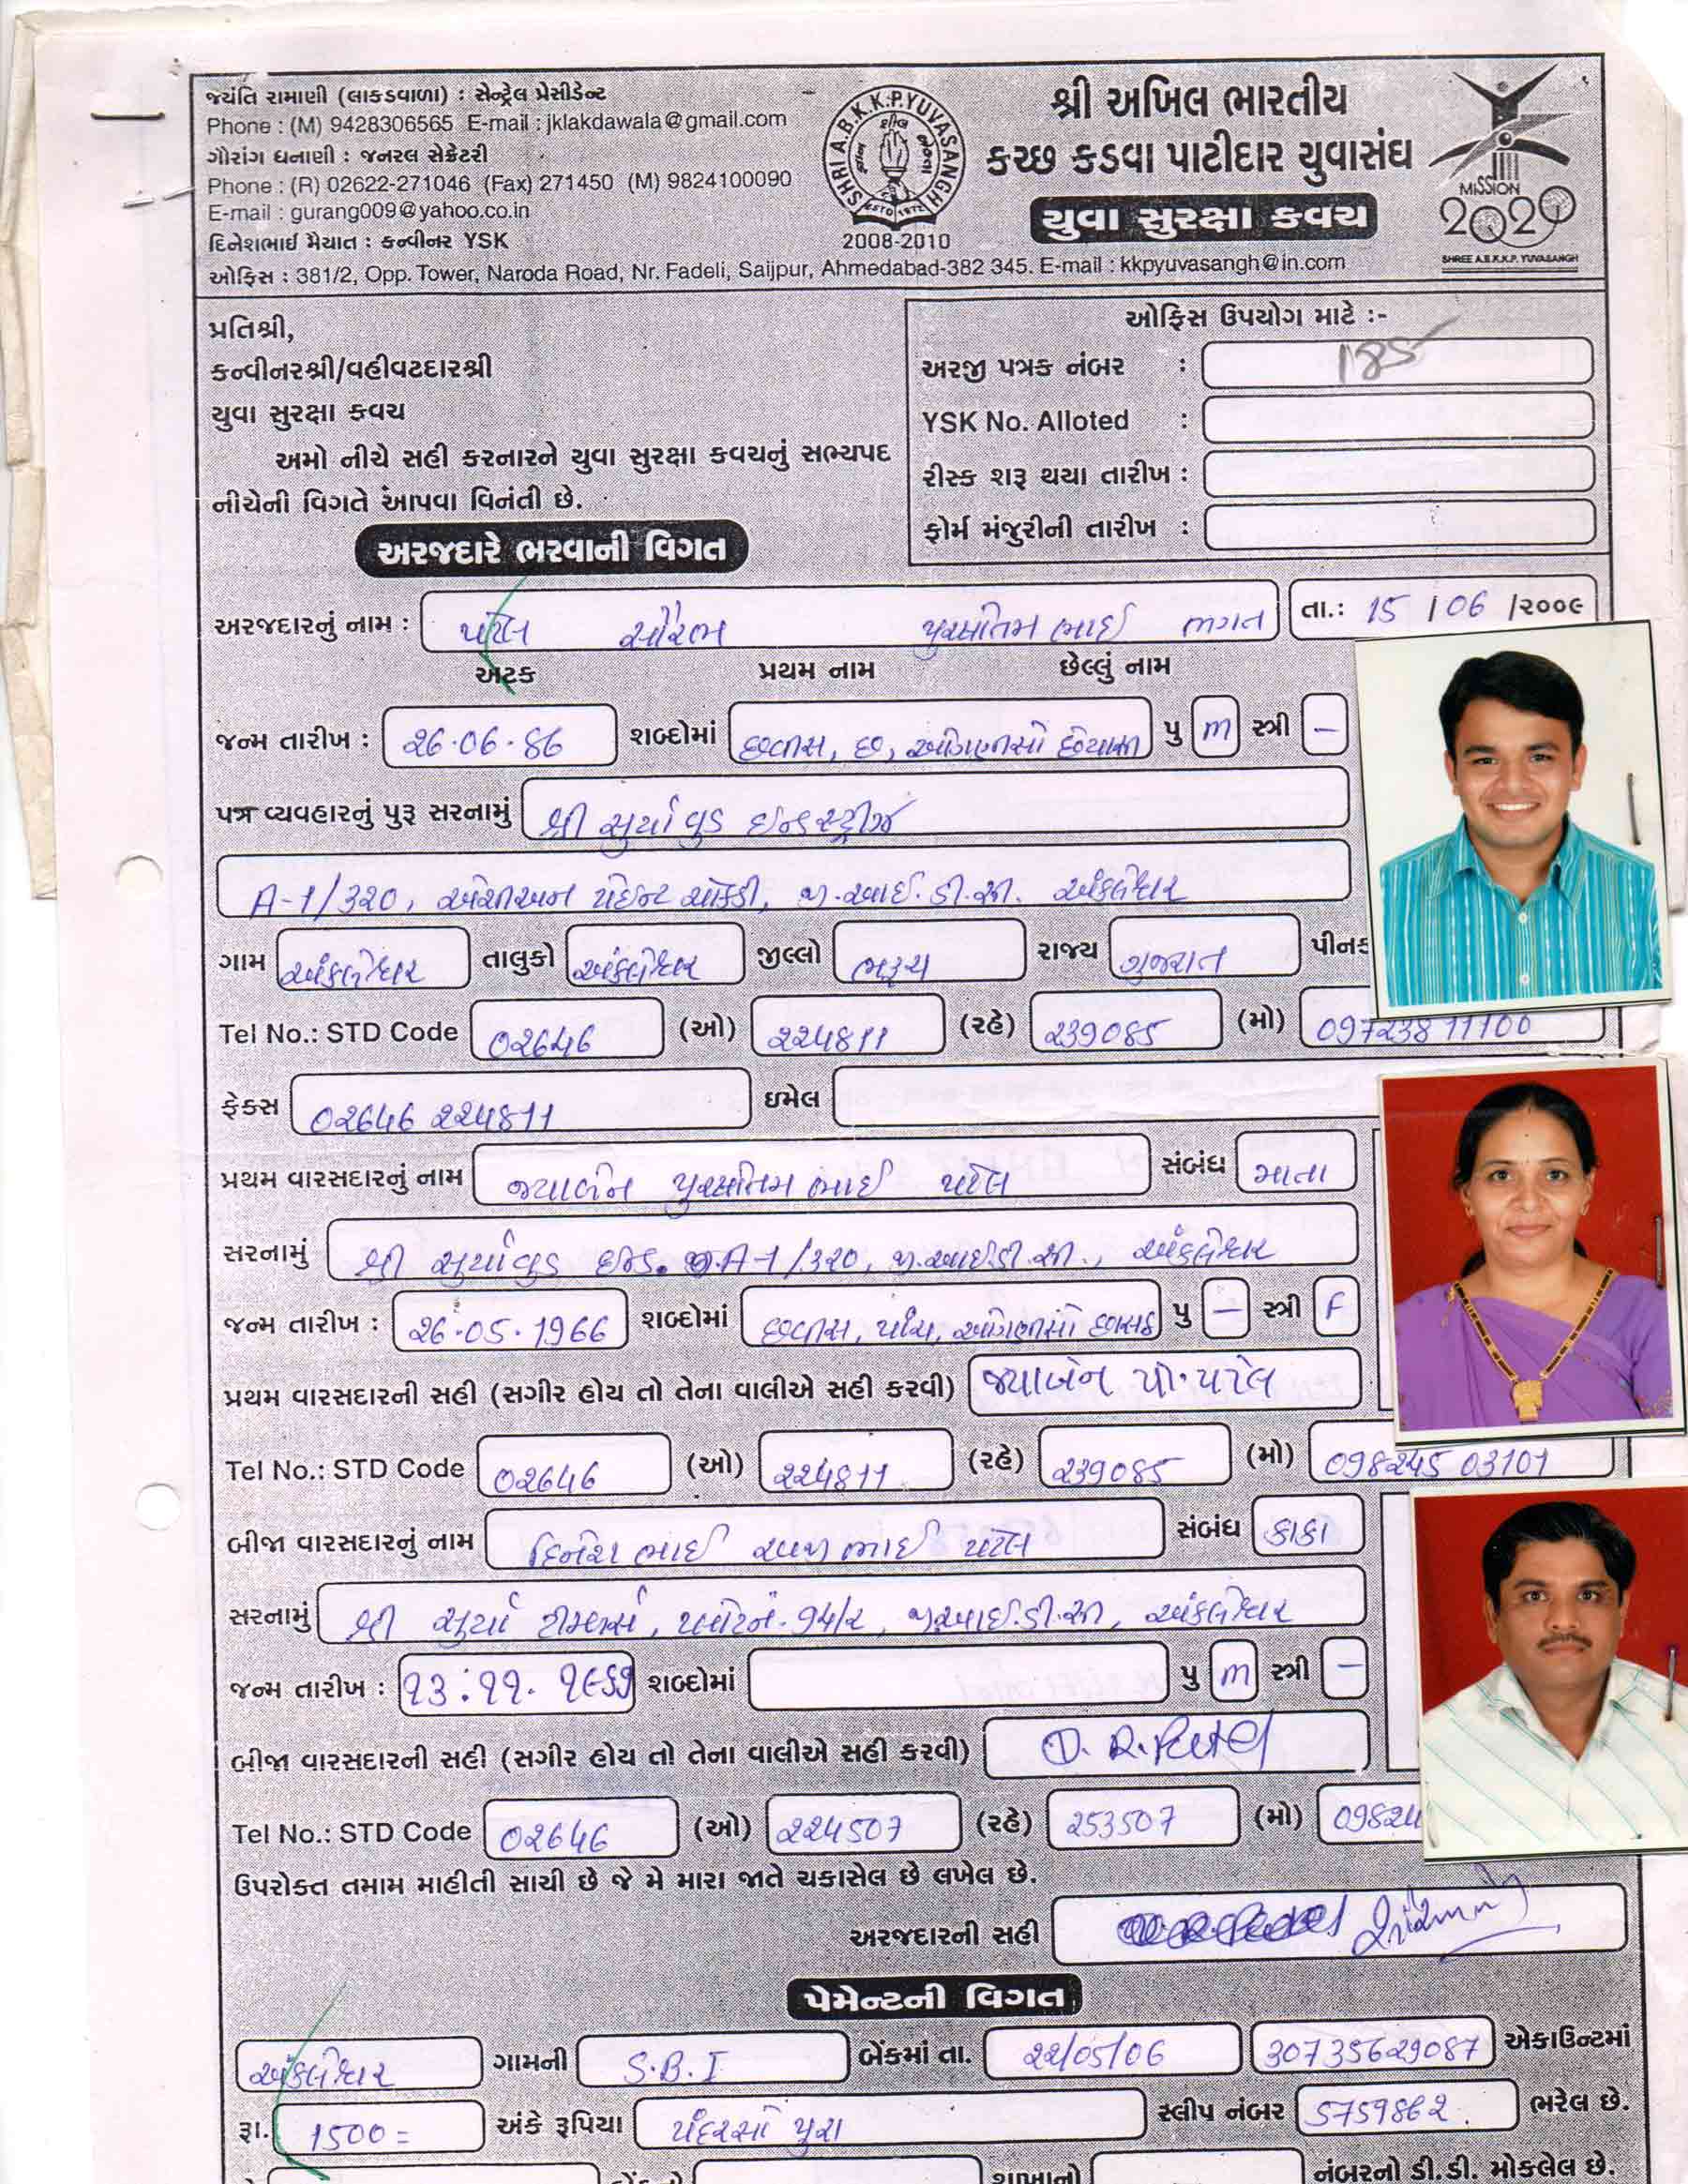 જયંતિ રામાણી (લાકડાવાળા) : સેન્ટ્રેલ પ્રેસીડેન્ટ
Phone : (M) 9428306565 E-mail : jklakdawala@gmail.com
ગૌરાંગ ધનાણી : જનરલ સેક્રેટરી
Phone : (R) 02622-271046 (Fax) 271450 (M) 9824100090
E-mail : gurang009@yahoo.co.in
દિનેશભાઈ મૈયાત : કન્વીનર YSK
ઓફિસ : 381/2, Opp. Tower, Naroda Road, Nr. Fadeli, Saijpur, Ahmedabad-382 345. E-mail : kkpyuvasangh@in.com
SHRI A.B.K.K.P. YUVASANGH
ESTD 1972
2008-2010
શ્રી અખિલ ભારતીય
કચ્છ કડવા પાટીદાર યુવાસંઘ
યુવા સુરક્ષા કવચ
MISSION
2020
SHREE A.B.K.K.P. YUVASANGH
પ્રતિશ્રી,
કન્વીનરશ્રી/વહીવટદારશ્રી
યુવા સુરક્ષા કવચ
અમો નીચે સહી કરનારને યુવા સુરક્ષા કવચનું સભ્યપદ
નીચેની વિગતે આપવા વિનંતી છે.
ઓફિસ ઉપયોગ માટે :-
અરજી પત્રક નંબર : 185
YSK No. Alloted :
રીસ્ક શરૂ થયા તારીખ :
ફોર્મ મંજુરીની તારીખ :
અરજદારે ભરવાની વિગત
અરજદારનું નામ : પટેલ સૌરભ પુરસોતમ ભાઈ ભગત તા.: 15 / 06 /૨૦૦૯
અટક પ્રથમ નામ છેલ્લું નામ
જન્મ તારીખ : 26.06.86 શબ્દોમાં છવ્વીસ, છ, ઓગણીસો છયાસી પુ m સ્ત્રી –
પત્ર વ્યવહારનું પુરૂ સરનામું શ્રી સુર્યા વુડ ઈન્ડસ્ટ્રીજ
A-1/320, એશીઅન પેઇન્ટ ચોકડી, જી.આઈ.ડી.સી. અંકલેશ્વર
ગામ અંકલેશ્વર તાલુકો અંકલેશ્વર જીલ્લો ભરૂચ રાજ્ય ગુજરાત પીનક
Tel No.: STD Code 02646 (ઓ) 224811 (રહે) 239085 (મો) 09723811100
ફેક્સ 02646 224811 ઇમેલ
પ્રથમ વારસદારનું નામ જયાબેન પુરસોતમ ભાઈ પટેલ સંબંધ માતા
સરનામું શ્રી સુર્યા વુડ ઈન્ડ. A-1/320, જી.આઈ.ડી.સી., અંકલેશ્વર
જન્મ તારીખ : 26.05.1966 શબ્દોમાં છવ્વીસ, પાંચ, ઓગણીસો છાસઠ પુ – સ્ત્રી F
પ્રથમ વારસદારની સહી (સગીર હોય તો તેના વાલીએ સહી કરવી) જયાબેન પી. પટેલ
Tel No.: STD Code 02646 (ઓ) 224811 (રહે) 239085 (મો) 098245 03101
બીજા વારસદારનું નામ દિનેશ ભાઈ ભાઈ પટેલ સંબંધ કાકા
સરનામું શ્રી સુર્યા ટીમ્બર્સ, પ્લોટ નં. ૧૫/૨, જી.આઈ.ડી.સી, અંકલેશ્વર
જન્મ તારીખ : ૧૩.૧૧. શબ્દોમાં પુ m સ્ત્રી –
બીજા વારસદારની સહી (સગીર હોય તો તેના વાલીએ સહી કરવી) D. R. Patel
Tel No.: STD Code 02646 (ઓ) 224507 (રહે) 253507 (મો) 09824
ઉપરોક્ત તમામ માહીતી સાચી છે જે મે મારા જાતે ચકાસેલ છે લખેલ છે.
અરજદારની સહી
પેમેન્ટની વિગત
અંકલેશ્વર ગામની S.B.I બેંકમાં તા. 22/05/06 30735629087 એકાઉન્ટમાં
રૂા. 1500= અંકે રૂપિયા પંદરસો પુરા સ્લીપ નંબર 5759862 ભરેલ છે.
શાખાનો નંબરનો ડી.ડી. મોકલેલ છે.